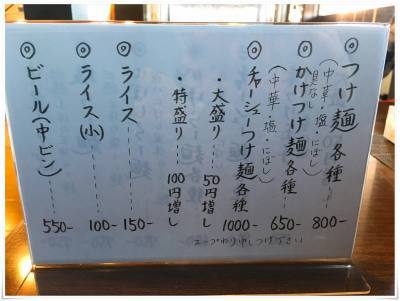 ◎つけ麺 各種 ……… 800-
(中華・塩・にぼし)
◎かけつけ麺 各種 …… 650-
具なし
(中華・塩・にぼし)
◎チャーシューつけ麺 各種 1000-
・大盛り 50円増し
・特盛り ……… 100円増し
◎ライス ……… 150-
◎ライス(小) ……… 100-
◎ビール(中ビン) ……… 550-
スープわり申しつけ下さい